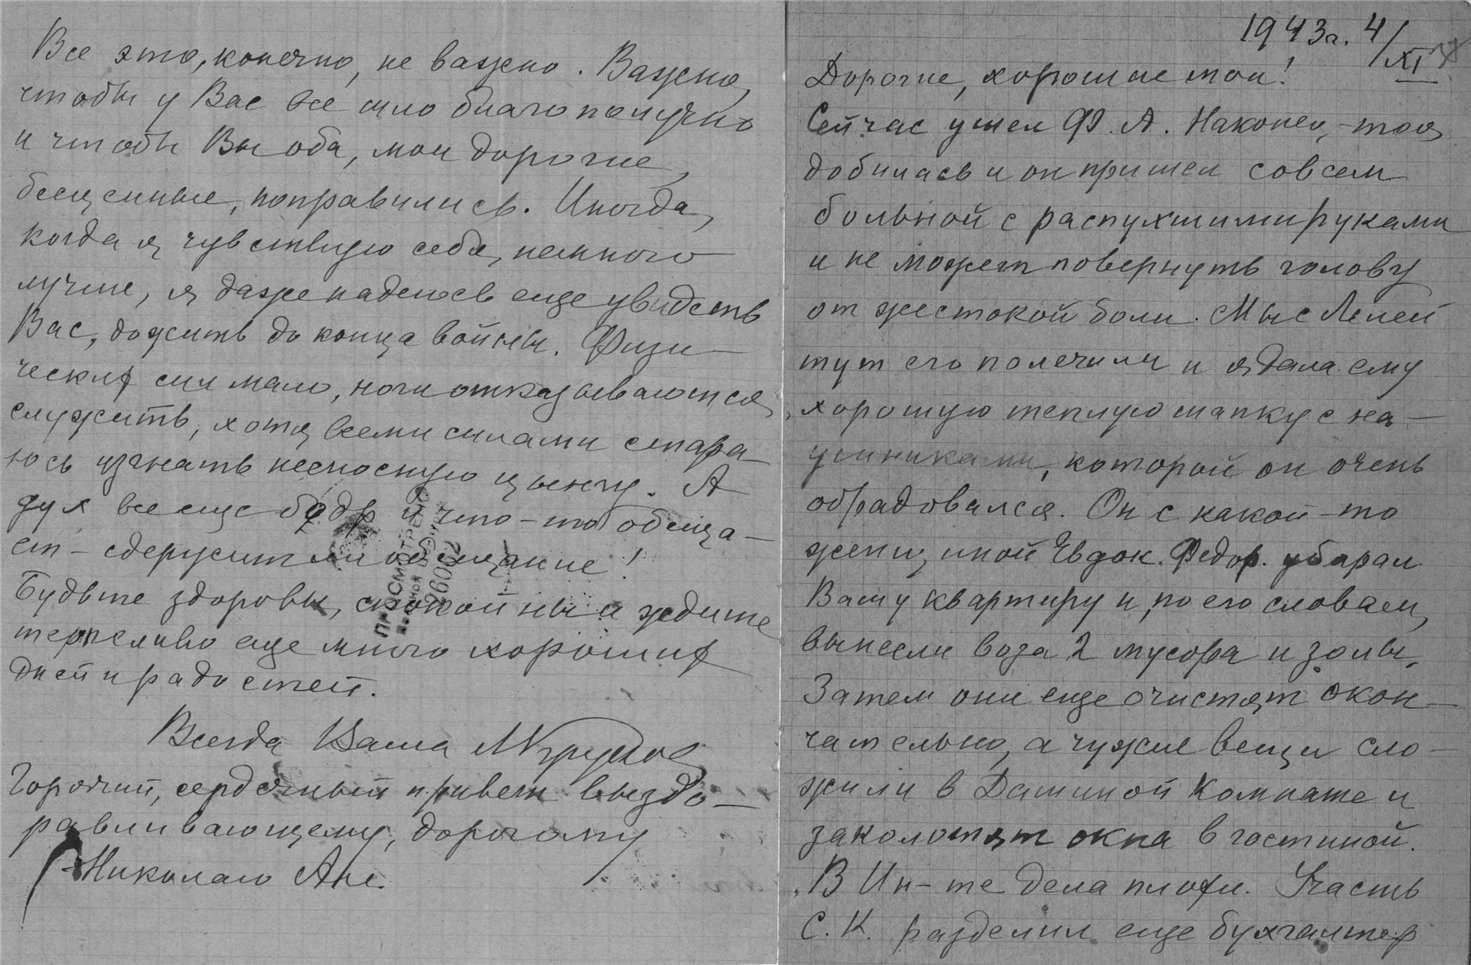 Все это, конечно, не важно. Важно,
чтобы у Вас все шло благополучно
и чтобы Вы оба, мои дорогие,
бесценные, поправились. Иногда,
когда я чувствую себя немного
лучше, я даже надеюсь еще увидеть
Вас, дожить до конца войны. Физи-
ческих сил мало, ноги отказываются
служить, хотя всеми силами стара-
юсь изгнать несносную цынгу. А
дух все еще бодр и что-то обеща-
ет - сдержит ли обещание!
Будьте здоровы, спокойны и ждите
терпеливо еще много хороших
дней и радостей.
Всегда Ваша
Горячий, сердечный привет выздо-
равливающему, дорогому
Николаю Ан.
ПРОСМОТРЕНО
1943 г. 4/XI
Дорогие, хорошие мои!
Сейчас ушел Ф. А. Наконец-то я
добилась и он пришел совсем
больной с распухшими руками
и не может повернуть голову
от жестокой боли. Мы с Лелей
тут его полечили и я дала ему
хорошую теплую шапку с на-
ушниками, которой он очень
обрадовался. Он с какой-то
женщиной Евдок. Федор. убирал
Вашу квартиру и, по его словам,
вынесли воза 2 мусора и золы.
Затем они еще очистят окон-
чательно, а чужие вещи сло-
жили в Дашиной комнате и
заколотят окна в гостиной.
В Ин-те дела плохи. Участь
С. К. разделил еще бухгалтер